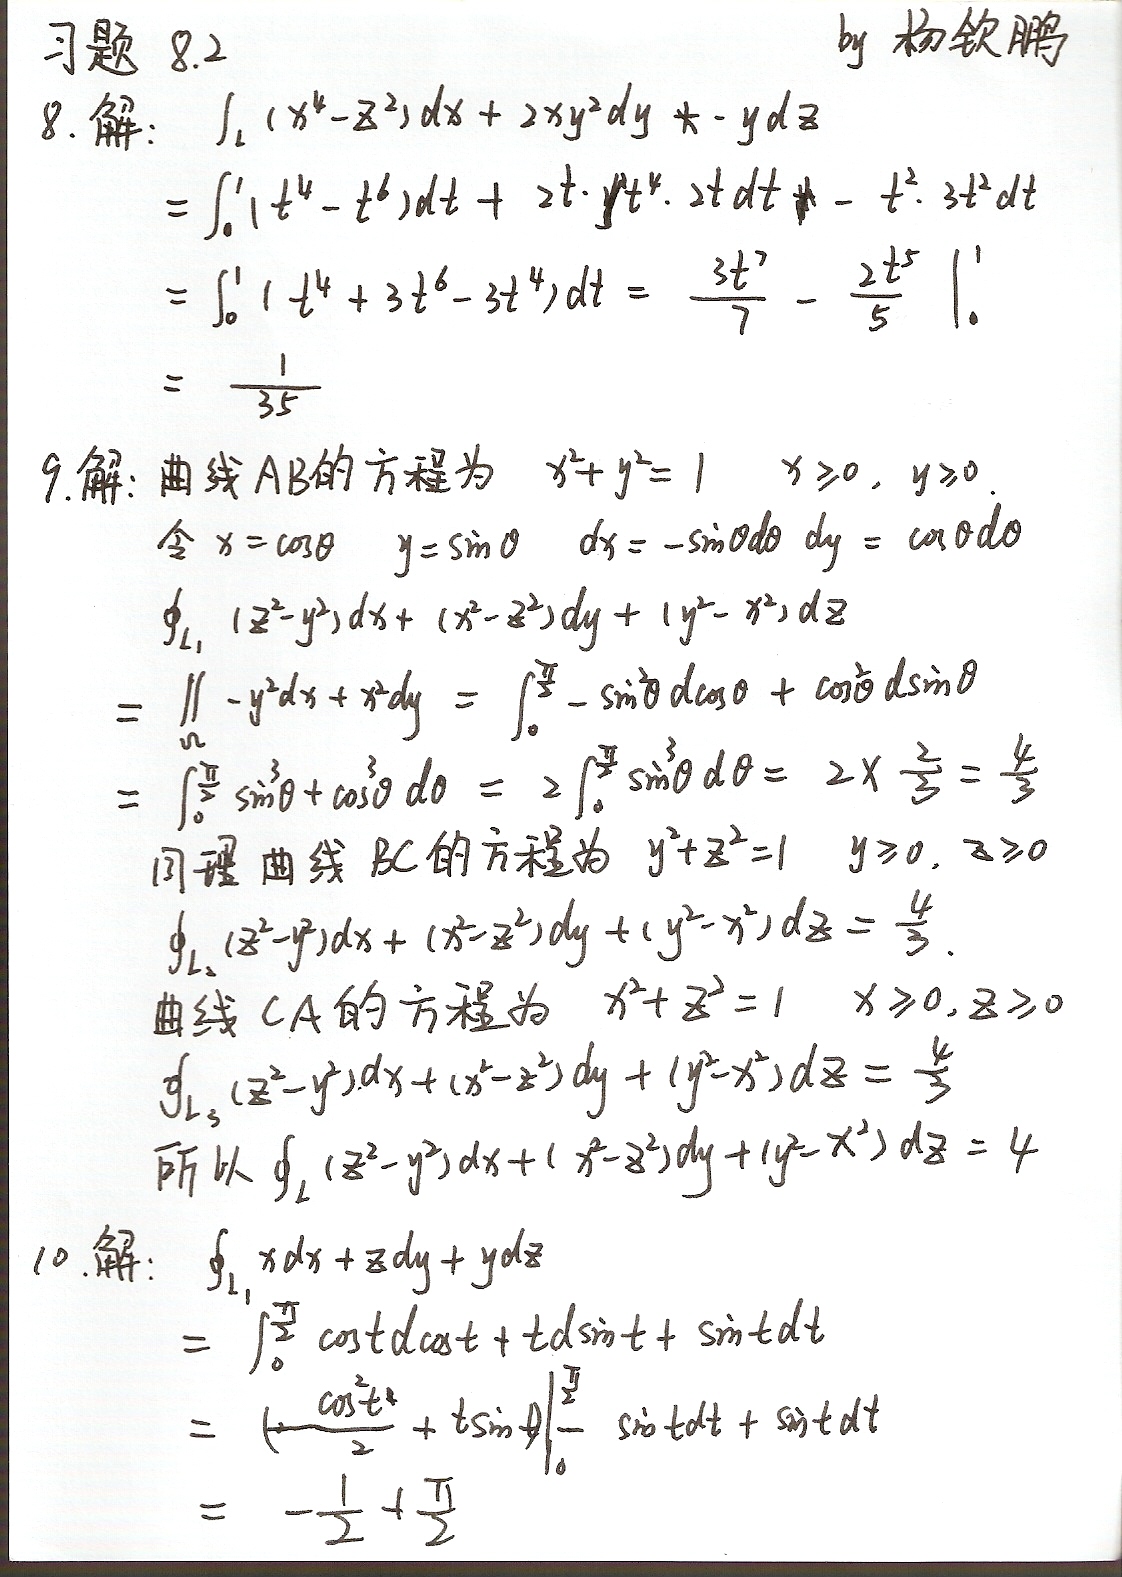 习题 8.2 by 杨钦鹏
8.解: ∫_L (x⁴-z²)dx + 2xy²dy - ydz
= ∫₀¹ (t⁴ - t⁶)dt + 2t·t⁴·2tdt - t²·3t²dt
= ∫₀¹ (t⁴ + 3t⁶ - 3t⁴)dt = 3t⁷/7 - 2t⁵/5 |₀¹
= 1/35
9.解: 曲线AB的方程为 x²+y²=1 x≥0, y≥0.
令 x=cosθ y=sinθ dx=-sinθdθ dy=cosθdθ
∮_{L₁} (z²-y²)dx + (x²-z²)dy + (y²-x²)dz
= ∬_Ω -y²dx + x²dy = ∫₀^{π/2} -sin²θ dcosθ + cos²θ dsinθ
= ∫₀^{π/2} sin³θ + cos³θ dθ = 2∫₀^{π/2} sin³θ dθ = 2× 2/3 = 4/3
同理 曲线BC的方程为 y²+z²=1 y≥0, z≥0
∮_{L₂} (z²-y²)dx + (x²-z²)dy + (y²-x²)dz = 4/3.
曲线CA的方程为 x²+z²=1 x≥0, z≥0
∮_{L₃} (z²-y²)dx + (x²-z²)dy + (y²-x²)dz = 4/3
所以 ∮_L (z²-y²)dx + (x²-z²)dy + (y²-x²)dz = 4
10.解: ∮_{L₁} xdx + zdy + ydz
= ∫₀^{π/2} costdcost + tdsint + sintdt
= (cos²t/2 + tsint)|₀^{π/2} - sintdt + sintdt
= -1/2 + π/2